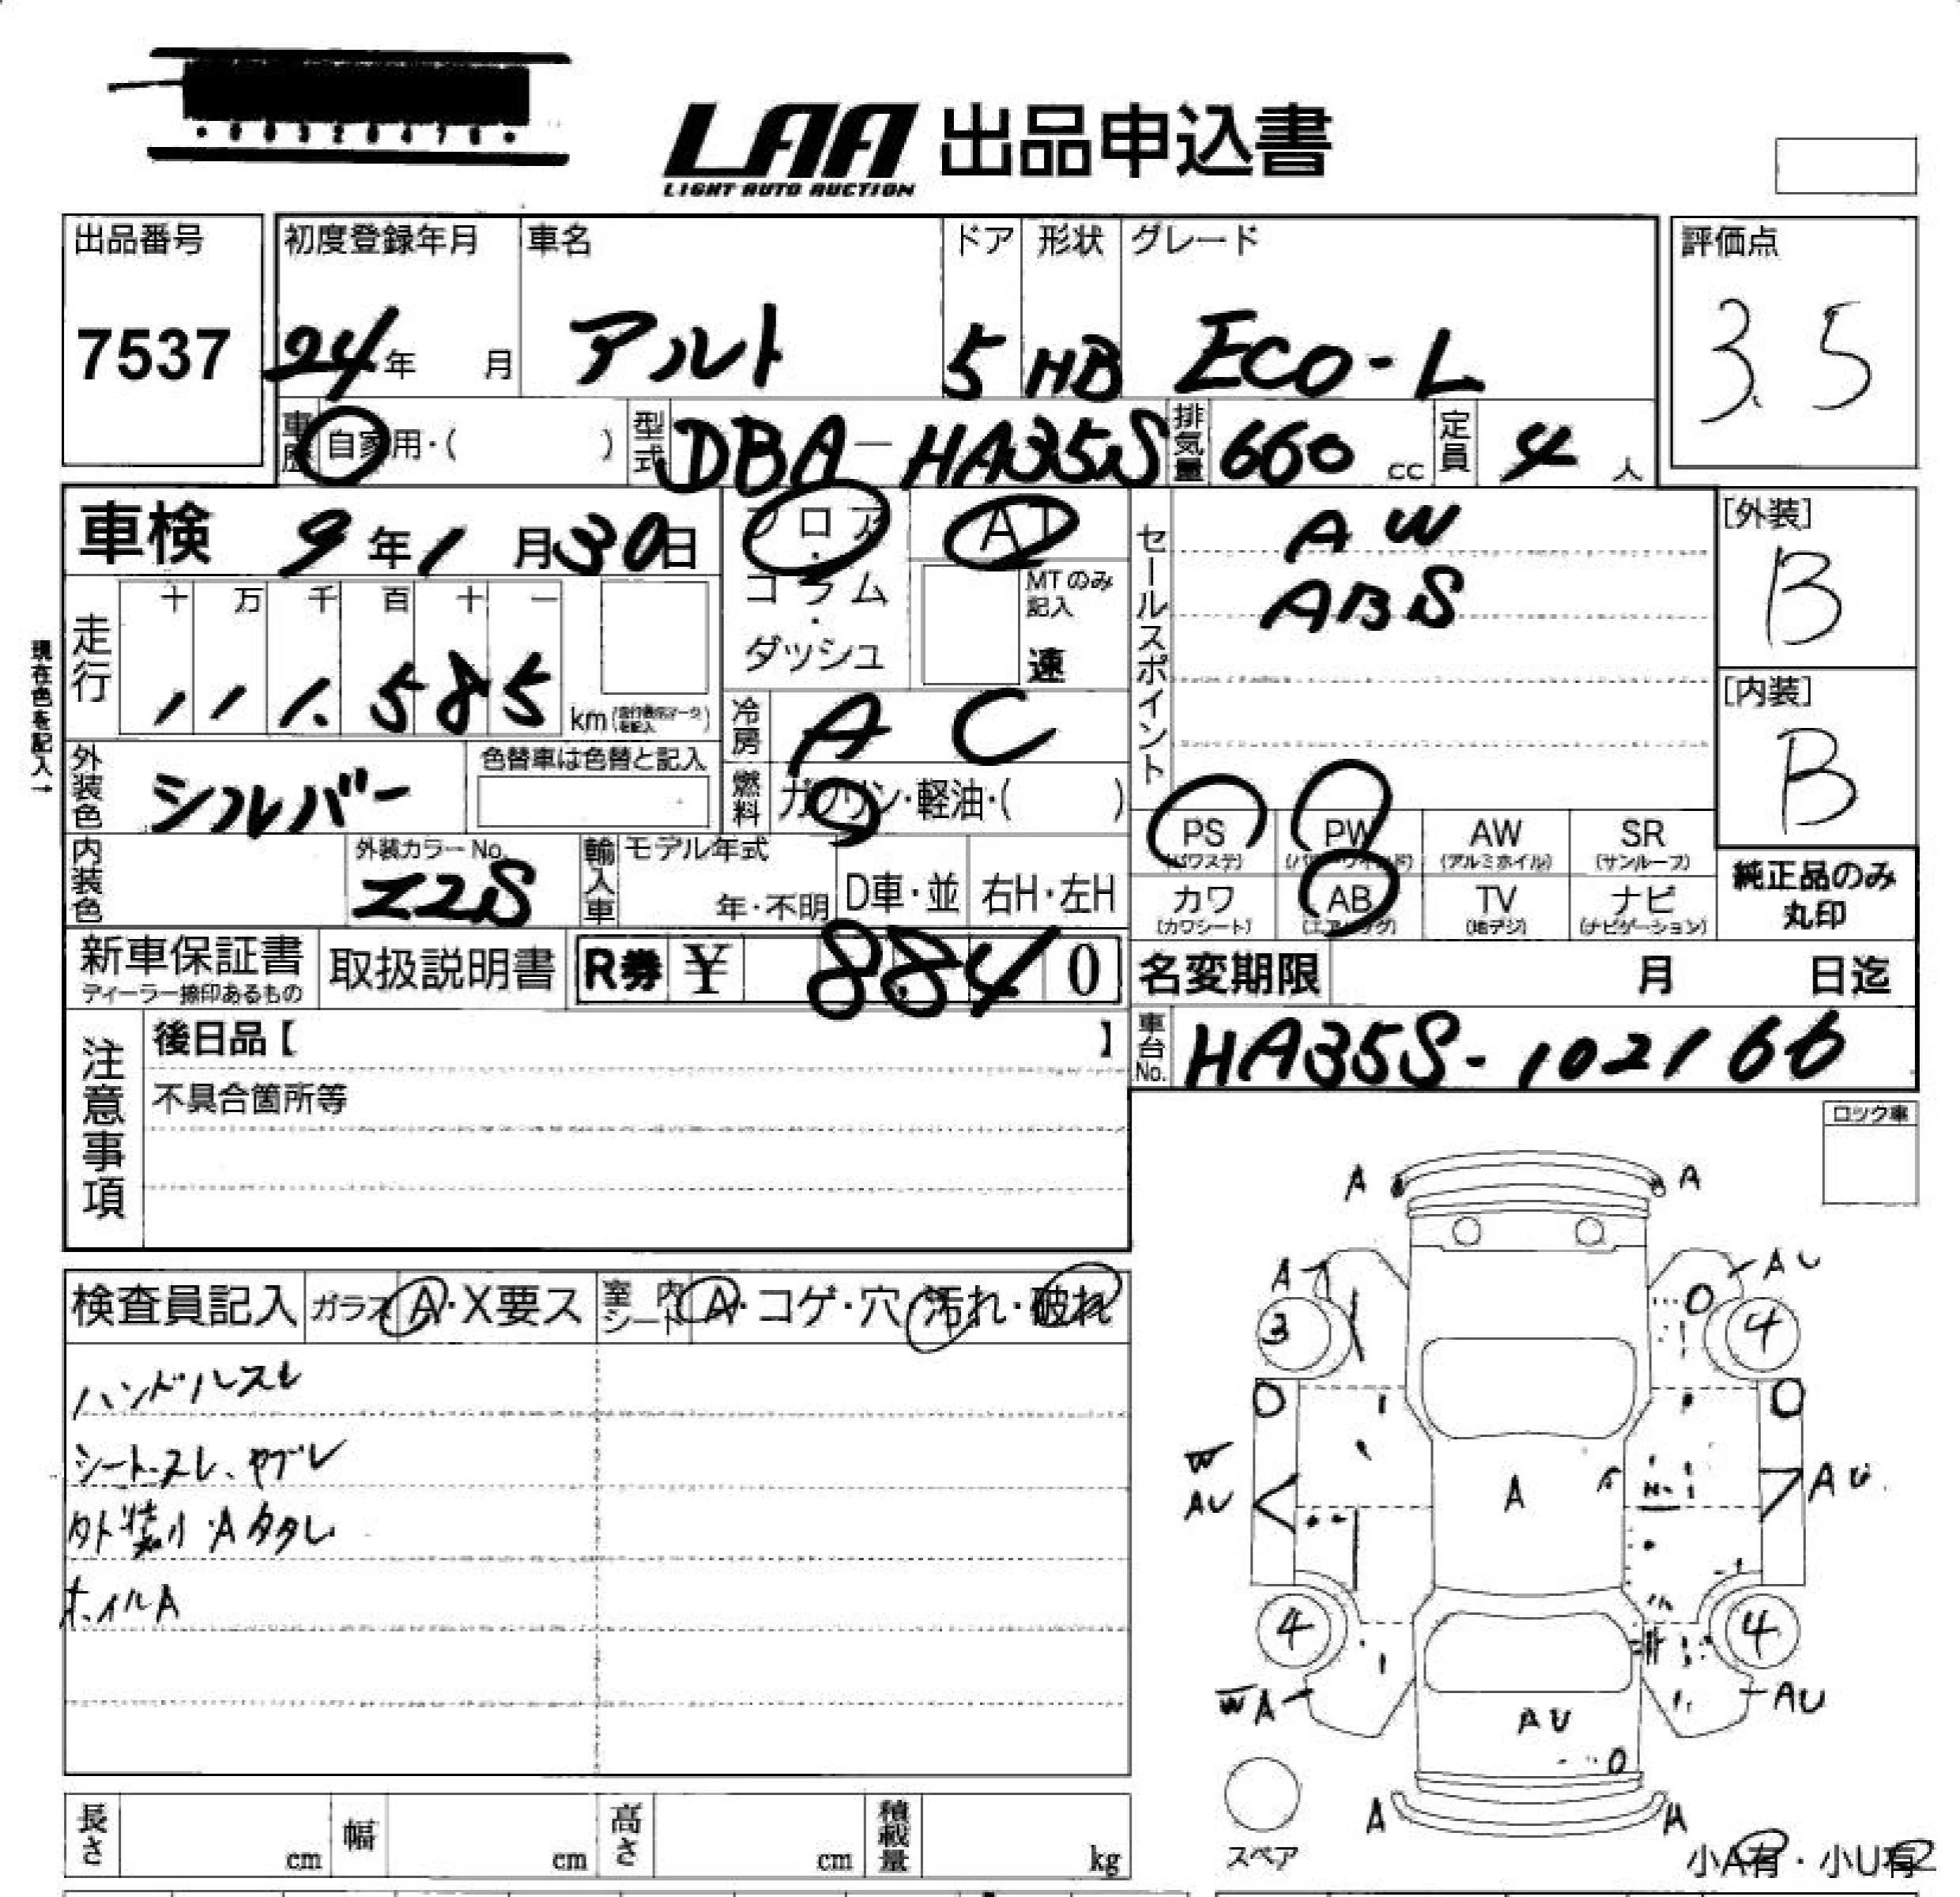 LAA 出品申込書
LIGHT AUTO AUCTION
出品番号
7537
初度登録年月
24年 月
車名
アルト
ドア
5
形状
HB
グレード
ECO-L
評価点
3.5
車歴 自家用・( )
型式 DBA-HA35S
排気量 660 cc
定員 4 人
車検 9年1月30日
フロア・コラム・ダッシュ
AT
MTのみ記入
速
セールスポイント
AW
ABS
[外装]
B
[内装]
B
現在色を記入→
走行
十 万 千 百 十 一
111,585 km
冷房 AC
外装色 シルバー
色替車は色替と記入
燃料 ガソリン・軽油・( )
内装色
外装カラーNo.
Z2S
輸入車
モデル年式
年・不明
D車・並
右H・左H
PS (パワステ)
PW (パワーウインド)
AW (アルミホイル)
SR (サンルーフ)
カワ (カワシート)
AB (エアバッグ)
TV (地デジ)
ナビ (ナビゲーション)
純正品のみ丸印
新車保証書
ディーラー捺印あるもの
取扱説明書
R券 ¥ 8,840
名変期限 月 日迄
車台No. HA35S-102166
注意事項
後日品【 】
不具合箇所等
ロック車
検査員記入
ガラス A・X要ス
室内シート A・コゲ・穴・汚れ・破れ
ハンドルスレ
シートスレ、ヤブレ
外装小Aタタレ
ホイルA
A A
A AU
3 4
W
AU A AU
4 4
WA AU
AU
A A
スペア
長さ cm
幅 cm
高さ cm
積載量 kg
小A有・小U有